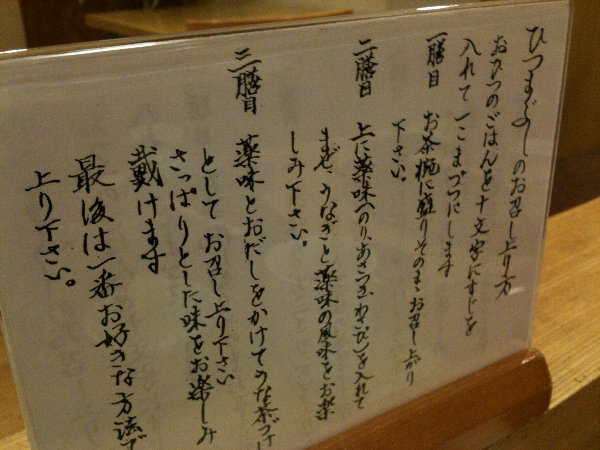 ひつまぶしのお召し上り方
おひつのごはんを十文字にすじを
入れて一こまづつにします
一膳目 お茶椀に盛りそのままお召し上がり
下さい。
二膳目 上に薬味(のり、あさつき、わさび)を入れて
まぜ、うなぎと薬味の風味をお楽
しみ下さい。
三膳目 薬味とおだしをかけてうな茶づけ
として お召し上り下さい
さっぱりとした味をお楽しみ
戴けます
最後は一番お好きな方法で
上り下さい。